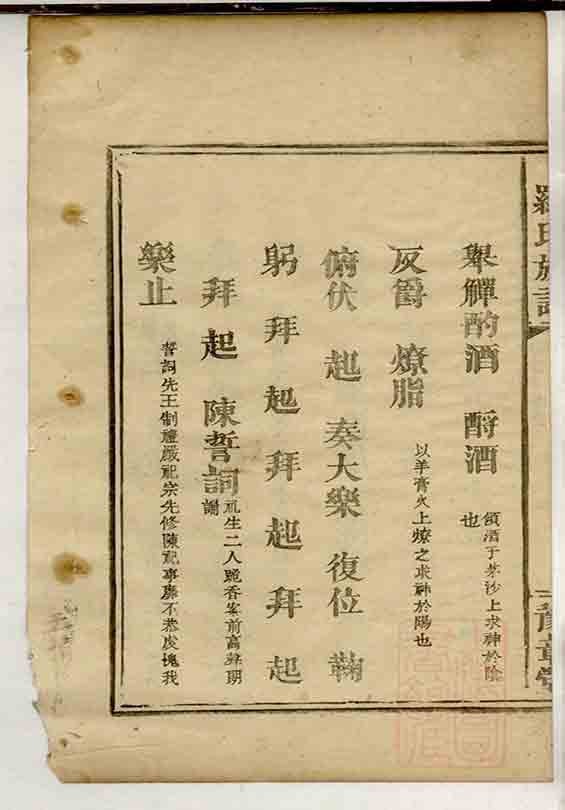 羅氏族譜
豫章堂
舉觶酌酒 酹酒 傾酒于茅沙上求神於陰也
反爵 燎脂 以羊膏火上燎之求神於陽也
俯伏 起 奏大樂 復位 鞠
躬 拜 起 拜 起 拜 起
拜 起 陳誓詞 礼生二人跪香案前高聲朗誦
樂止 誓詞先王制禮嚴祀宗先修陳祀事靡不恭虔愧我